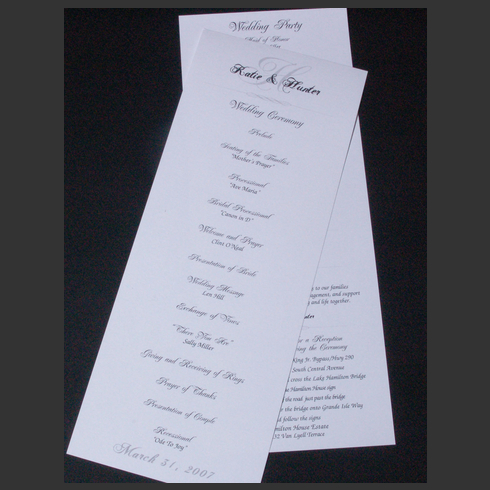 Wedding Party
Maid of Honor
H
Katie & Hunter
Wedding Ceremony
Prelude
Seating of the Families
"Mother's Prayer"
Processional
"Ave Maria"
Bridal Processional
"Canon in D"
Welcome and Prayer
Clint O'Neal
Presentation of Bride
Wedding Message
Len Hill
Exchange of Vows
Sally Miller
Giving and Receiving of Rings
Prayer of Thanks
Presentation of Couple
Recessional
"Ode To Joy"
March 31, 2007
to our families
and support
and life together.
a Reception
the Ceremony
King Jr. Bypass/Hwy 280
South Central Avenue
cross the Lake Hamilton Bridge
Hamilton House sign
the road just past the bridge
the bridge onto Grande Isle Way
House Estate
Van Lyell Terrace